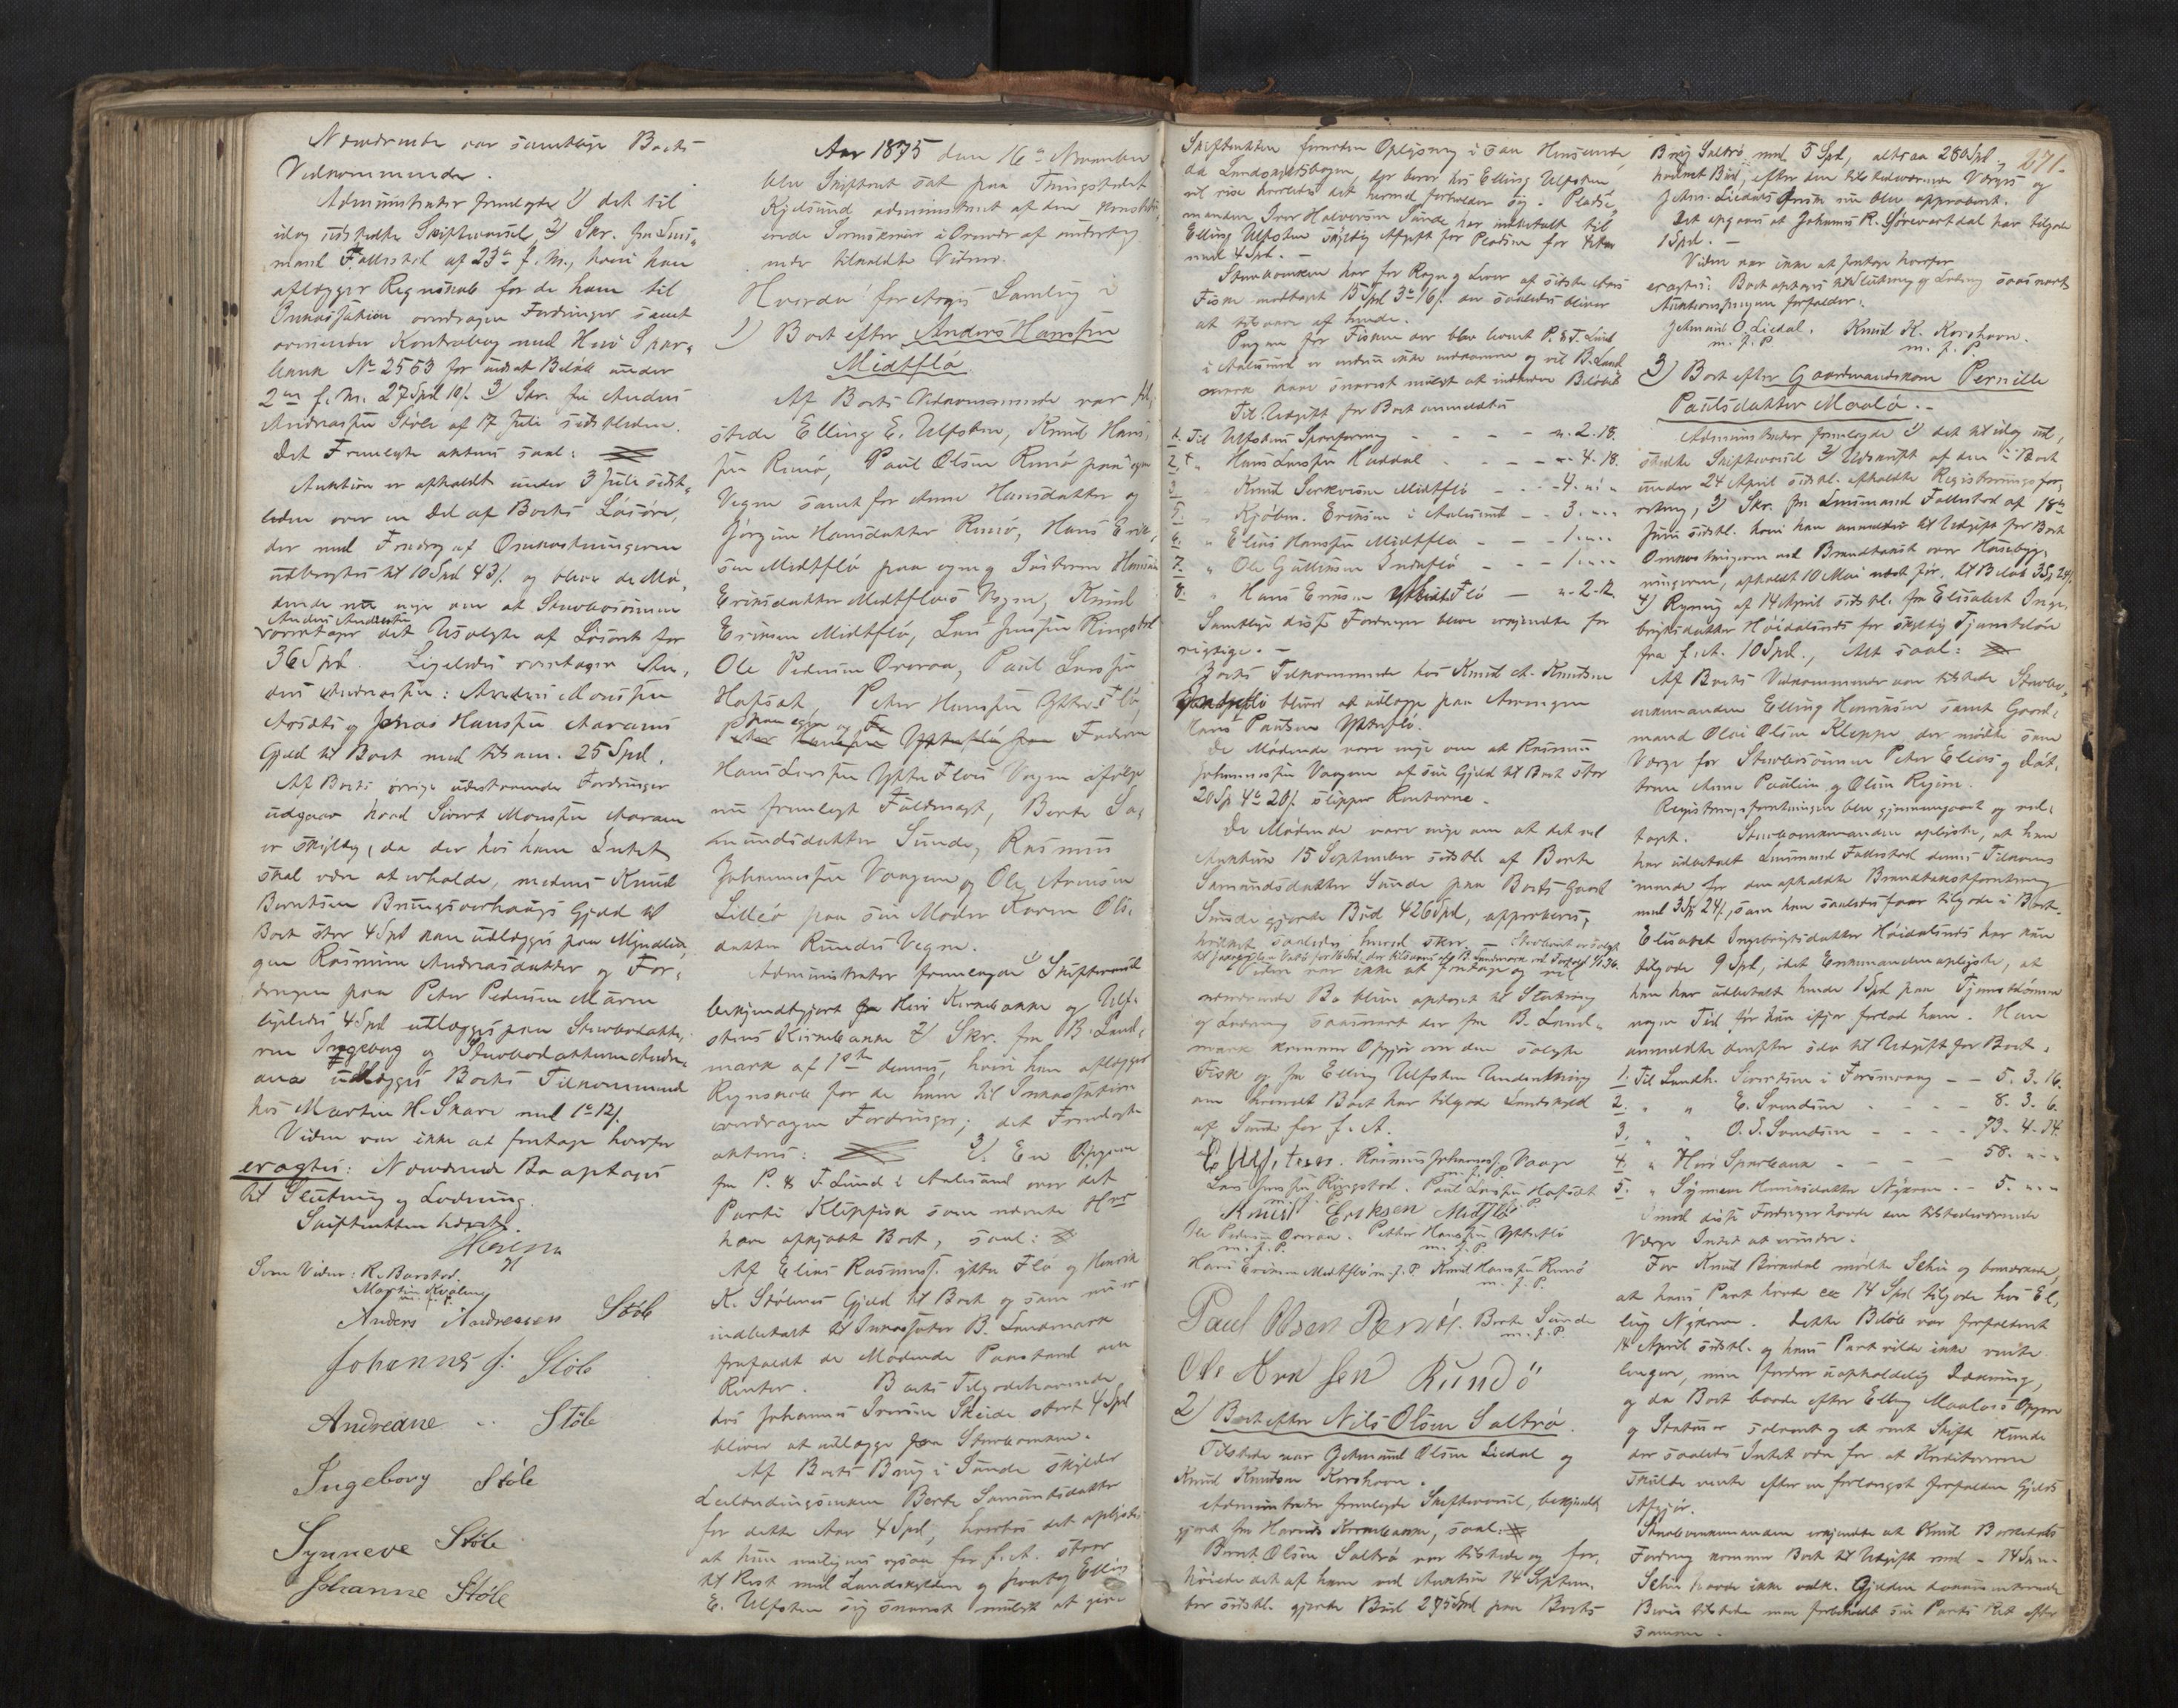 Nærværende var samtlige Boets
Vedkommende.
Administrator fremlagde 1) det til
idag udstedte Skiftevarsel, 2) Skr. fra Lens-
mand Fallestad af 23de f. M., hvori han
aflægger Regnskab for de ham til
Inkassation overdragne Fordringer samt
Kontrabog med Herö Spar-
bank No 2563 for indsat Beløb under
2den f. M. 27 Spd 10 s. 3) Skr. fra Anders
Andreassen Støle af 17 Juli sidstleden.
Det Fremlagte aktens saal:
Auktion er afholdt under 3 Juli sidst-
leden over en Del af Boets Løsøre,
der med Fradrag af Omkostningerne
udbragtes til 10 Spd 43 s. og bleve de Mø-
dende enige om at Stervbosønnen
Anders Andreassen
overtager det Usolgte af Løsøret for
36 Spd. Ligeledes overtager An-
ders Andreassen: Anders Monssen
Aarsæts og Jonas Hanssen Aarams
Gjæld til Boet med tilsam. 25 Spd.
Af Boets øvrige udestaaende Fordringer
udgaar hvad Sivert Monssen Aaram
er skyldig, da der hos ham Intet
skal være at erholde, medens Knud
Berntsen Gjæld til
Boet stor 4 Spd kan udlægges paa Myndlin-
gen Rasmine Andreasdatter og For-
dringen paa Peter Pedersen
ligeledes 4 Spd udlægges paa Stervbodatte-
ren Ingeborg og Stervbodatteren Andre-
ana udlægges Boets Tilkommende
hos Martin H. Skare med 1 12 s.
Videre var ikke at foretage hvorfor
eragtes: Nærværende Bo optages
til Slutning og Lodning.
Skifteretten hævet.
Som Vidner: R. Barstad.
Martin Kvalen
m. f. P.
Anders Andreassen Støle
Johannes J. Støle
Andreane " Støle
Ingeborg Støle
Synneve Støle
Johanne Støle
Aar 1875 den 16de November
blev Skifteret sat paa Thingstedet
Kjelsund administreret af den konstitu-
erede Sorenskriver i Overvær af undertegn-
ede tilkaldte Vidner.
Hvorda foretoges Samling i
1) Boet efter Anders Hanssen
Midtflø
Af Boets Vedkommende var til-
stede Elling E. Ulfsten, Knud Hans-
sen Runø, Paul Olsen Runø paa egne
Vegne samt for Anne Hansdatter og
Jørgine Hansdatter Runø, Hans Erik-
sen Midtflø paa egne og Søsteren
Eriksdatter Midtfløs Vegne, Knud
Eriksen Midtflø, Lars Jenssen Ringstad
Ole Pedersen Overaa, Paul Larssen
Hafsæt, Peter Hanssen Ytterflø
paa egne og Faderen
Hans Larssen Ytterfløs Vegne ifølge
nu fremlagt Fuldmagt, Berte Sa-
mundsdatter Sunde, Rasmus
Johannessen Vaagen og Ole Arnesen
Lilleø paa sin Moder Karen Ols-
datter Rundes Vegne.
Administrator fremlagde 1) Skiftevarsel
bekjendtgjort fra Herö Kirkebakke og Ulf-
stens Kirkebakke 2) Skr. fra B. Land-
mark af 1ste dennes, hvori han aflægger
Regnskab for de ham til Inkassation
overdragne Fordringer; det Fremlagte
aktens: 3) En Opgave
fra P. & T. Lund i Aalesund over det
Parti Klipfisk som nævnte Hrr
have afkjøbt Boet, saal:
Af Elias Rasmuss. ytter Flø og Henrik
K. Stølenes Gjæld til Boet og som nu er
indbetalt til Inkassator B. Landmark
frafaldt de Mødende Paastand om
Renter. Boets Tilgodehavende
hos Johannes Iversen Skeide stort 4 Spd
bliver at udlægge paa Stervboenken.
Af Boets Brug i Sunde skylder
Leilændingsenken Berte Samundsdatter
for dette Aar 4 Spd, hvorhos det oplystes
at hun muligens ogsaa for f. A. staar
til Rest med Landskylden og paatog Elling
E. Ulfsten sig snarest muligt at give
Skifteretten fornøden Oplysning i saa Henseende,
da Landskyldbogen, der beror hos Elling Ulfsten,
vil vise hvorledes det hermed forholder sig. Plads-
manden Iver Halvorsen Sunde har indbetalt til
Elling Ulfsten skyldig Afgift for Pladsen for
med 4 Spd. —
Stervboenken har for Rogn og Lever af sidste Aars
Fiske modtaget 15 Spd 3 16 s. der saaledes bliver
at tilsvare af hende.
Pengene for Fisken der blev leveret P. & T. Lund
i Aalesund er endnu ikke indkomne og vil B. Land-
mark have snarest muligt at indkræve Beløbet
Til Udgift for Boet anmeldtes
1. Til Ulfstens Sparebank - - - - " . 2 . 18.
2. " Hans Larssen Haddal - - - " . 4 . 18.
3. Knud Midtflø - - - 4 . " . "
5. " Kjøbm. Eriksen i Aalesund - - 3 . " . "
6. " Elias Hanssen Midtflø - - - 1 . " . "
7. " Ole Guttormsen Indreflø - - - 1 . " . "
8. " Hans Eriksen Flø — " . 2 . 12.
Samtlige disse Fordringer bleve erkjendte for
rigtige. —
Boets Tilkommende hos Knud A. Knudsen
bliver at udlægge paa Arvingen
Hans Paulsen Ytterflø.
De Mødende vare enige om at Rasmus
Johannessen Vaagen af sin Gjæld til Boet stor
20 Sp 4 20 s. slipper Renterne.
De Mødende vare enige om at det ved
Auktion 15 September sidstl. af Berte
Samundsdatter Sunde paa Boets Gaard
Sunde gjorte Bud 426 Spd, approberes,
hvilket saaledes hermed skeer. —
Videre var ikke at foretage og vil
nærværende Bo blive optaget til Slutning
og Lodning saasnart der fra B. Land-
mark kommer Opgjør om den solgte
Fisk og fra Elling Ulfsten Underretning
om hvorvidt Boet har tilgode Landskyld
af Sunde for f. A.
E Ulfsten. Rasmus Johanness. Vaage
m. f. P.
Lars Jenssen Ringstad. Paul Larssen Hafsæt
m. f. P. m. f. P.
Knud Eriksen Midtflø
Ole Pedersen Overaa. Petter Hanssen Ytterflø
m. f. P. m. f. P.
Hans Eriksen Midtflø m. f. P. Knud Hanssen Runø
m. f. P.
Paul Olsen Runø. Berte Sunde
m. f. P.
Ole Arnesen Rundö
2) Boet efter Nils Olsen Saltrø.
Tilstede var Gjetmund Olsen Liedal og
Knud Knudsen Korshavn.
Administrator fremlagde Skiftevarsel, bekjendt-
gjort fra Havnds Kirkebakke, saal:
Bernt Olsen Saltrø var tilstede og for-
høiede det af ham ved Auktion 14 Septem-
ber sidstl. gjorte Bud 275 Spd paa Boets
Brug Saltrø med 5 Spd, altsaa 280 Spd, 671.
hvilket Bud, efter den tilstedeværende Værges og
Gjetm. Liedals Ønske nu blev approberet.
Det opgaves at Johannes R. Sørevartdal har tilgode
1 Spd. —
Videre var ikke at foretage hvorfor
eragtes: Boet optages til Slutning og Lodning saasnart
Auktionspengene forfalder.
Gjetmund O. Liedal. Knud K. Korshavn.
m. f. P. m. f. P.
3) Boet efter Gaardmandskone Pernille
Paulsdatter Maalø. —
Administrator fremlagde 1) det til idag ud-
stedte Skiftevarsel 2) Udskrift af den i Boet
under 24 April sidstl. afholdte Registreringsfor-
retning, 3) Skr. fra Lensmand Fallestad af 18de
Juni sidstl. hvori han anmelder til Udgift for Boet
Omkostningerne ved Brandtaxt over Husebyg-
ningerne, afholdt 10 Mai næst før, til Beløb 3 Sp 24 s.
4) Regning af 14 April sidstl. fra Elisabet Inge-
brigtsdatter Høidalsnes for skyldig Tjenesteløn
fra f. A. 10 Spd., Alt saal:
Af Boets Vedkommende var tilstede Stervbo-
enkemanden Elling Henriksen samt Gaard-
mand Olai Olsen Kleppe der mødte som
Værge for Stervbosønnen Peter Elias og Døt-
trene Anne Pauline og Oline Regine.
Registreringsforretningen blev gjennemgaaet og ved-
taget. Stervboenkemanden oplyste, at han
har udbetalt Lensmand Fallestad dennes Tilkom-
mende for den afholdte Brandtaxtforretning
med 3 Sp 24 s., som han saaledes faar tilgode i Boet.
Elisabet Ingebrigtsdatter Høidalsnes har kun
tilgode 9 Spd, idet Enkemanden oplyste, at
han har udbetalt hende 1 Spd paa Tjenestelønnen
nogen Tid før hun ifjor forlod ham. Han
anmeldte derefter som til Udgift for Boet.
1. Til Landh. Sivertsen i Forsnavaag - - 5 . 3 . 16.
2. " " E. Svendsen - - - - 8 . 3 . 6.
3. " " O. S. Svendsen - - - - 73 . 4 . 14.
4. " Herö Sparbank - - - - 58 . " . "
5. " Synneve Henriksdatter - - 5 . " . "
Imod disse Fordringer havde den tilstedeværende
Værge Intet at erindre.
For Knud mødte Schie og bemærkede,
at hans Part havde 14 Spd tilgode hos El-
ling . Dette Beløb var forfaldent
14 April sidstl. og hans Part vilde ikke vente
længere, men fordrer uopholdelig Dækning,
og da Boet havde efter Elling Maaløs Opgave
og Status er solvent og et rent Skifte kunde
der saaledes Intet være for at Kreditorerne
skulde vente efter en forlængst forfalden Gjælds
Afgjør.
Stervboenkemanden erkjendte at Knud
Fordring kommer Boet til Udgift med - 14 Sp " "
Schie havde ikke Gjælden
Bevis tilstede men forbeholdt sin Parts Ret efter
samme.